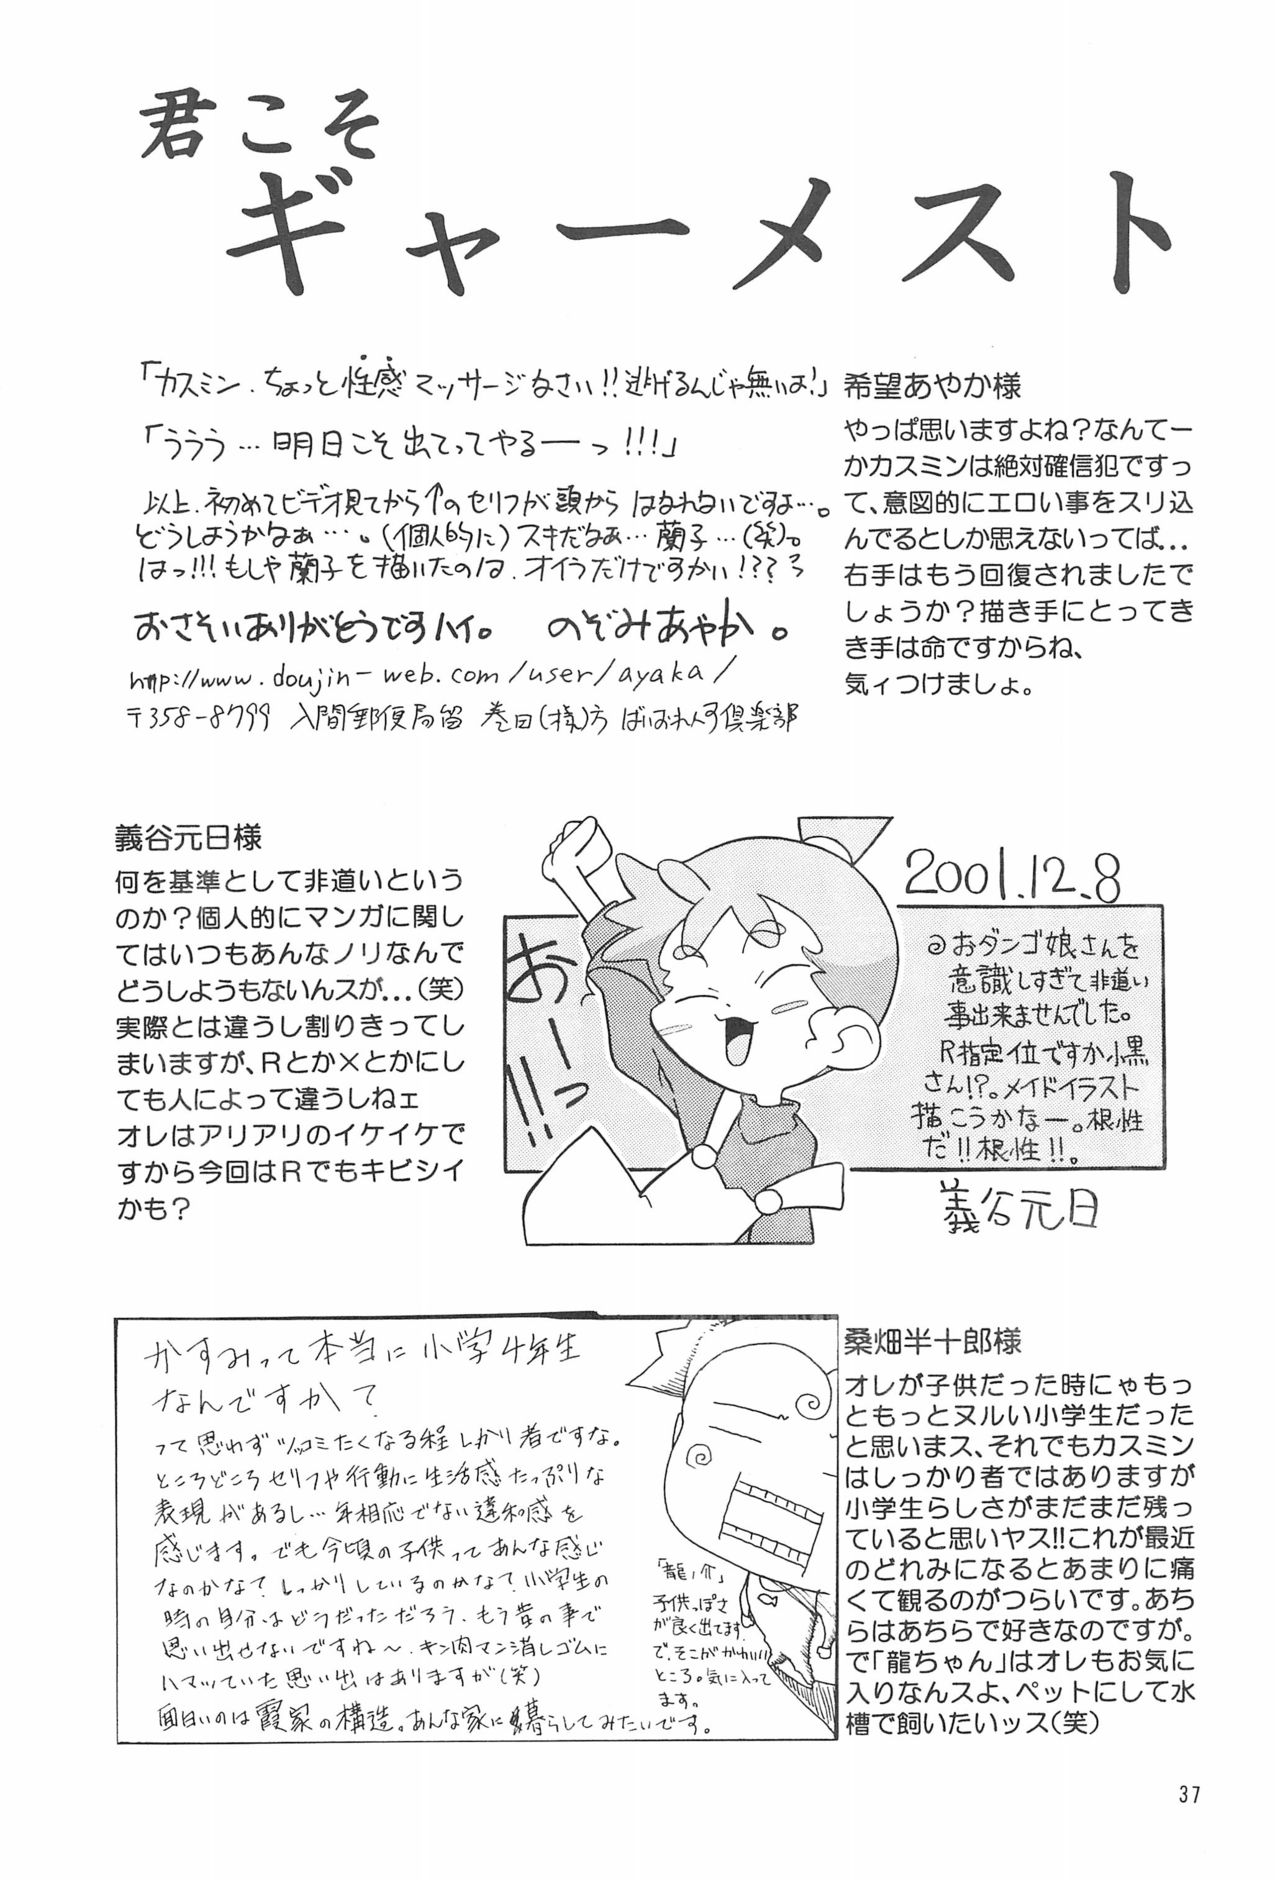 君こそ
ギャーメスト
「カスミン、ちょっと性感マッサージなさい!!逃げるんじゃ無いよ!」
「ううう…明日こそ出てってやるーっ!!!」
以上、初めてビデオ見てから↑のセリフが頭からはなれないですよ…。
どうしようかなぁ…。(個人的に)スキだなぁ…蘭子…(笑)。
はっ!!!もしや蘭子を描いたのは、オイラだけですかい!???
おさそいありがとうですハイ。 のぞみあやか。
http://www.doujin-web.com/user/ayaka/
〒358-8799 入間郵便局留 巻田(様)方 ばいおれんす倶楽部
希望あやか様
やっぱ思いますよね?なんてー
かカスミンは絶対確信犯ですっ
て、意図的にエロい事をスリ込
んでるとしか思えないってば…
右手はもう回復されましたで
しょうか?描き手にとってき
き手は命ですからね、
気ィつけましょ。
義谷元日様
何を基準として非道いという
のか?個人的にマンガに関し
てはいつもあんなノリなんで
どうしようもないんスが…(笑)
実際とは違うし割りきってし
まいますが、Rとか×とかにし
ても人によって違うしねェ
オレはアリアリのイケイケで
すから今回はRでもキビシイ
かも?
おーっ!!
2001.12.8
◎おダンゴ娘さんを
意識しすぎて非道い
事出来ませんでした。
R指定位ですか小黒
さん!?。メイドイラスト
描こうかなー。根性
だ!!根性!!。
義谷元日
かすみって本当に小学4年生
なんですか?
って思わずツッコミたくなる程しかり者ですな。
ところどころセリフや行動に生活感たっぷりな
表現があるし…年相応でない違和感を
感じます。でも今頃の子供ってあんな感じ
なのかな?しっかりしているのかな?小学生の
時の自分はどうだっただろう、もう昔の事で
思い出せないですね〜、キン肉マン消しゴムに
ハマッていた思い出はありますが(笑)
面白いのは霞家の構造。あんな家に暮らしてみたいです。
「龍ノ介」
子供っぽさ
が良く出てます
で、そこがかわいい
ところ。気に入って
ます。
桑畑半十郎様
オレが子供だった時にゃもっ
ともっとヌルい小学生だった
と思いまス、それでもカスミン
はしっかり者ではありますが
小学生らしさがまだまだ残っ
ていると思いヤス!!これが最近
のどれみになるとあまりに痛
くて観るのがつらいです。あち
らはあちらで好きなのですが。
で「龍ちゃん」はオレもお気に
入りなんスよ、ペットにして水
槽で飼いたいッス(笑)
37